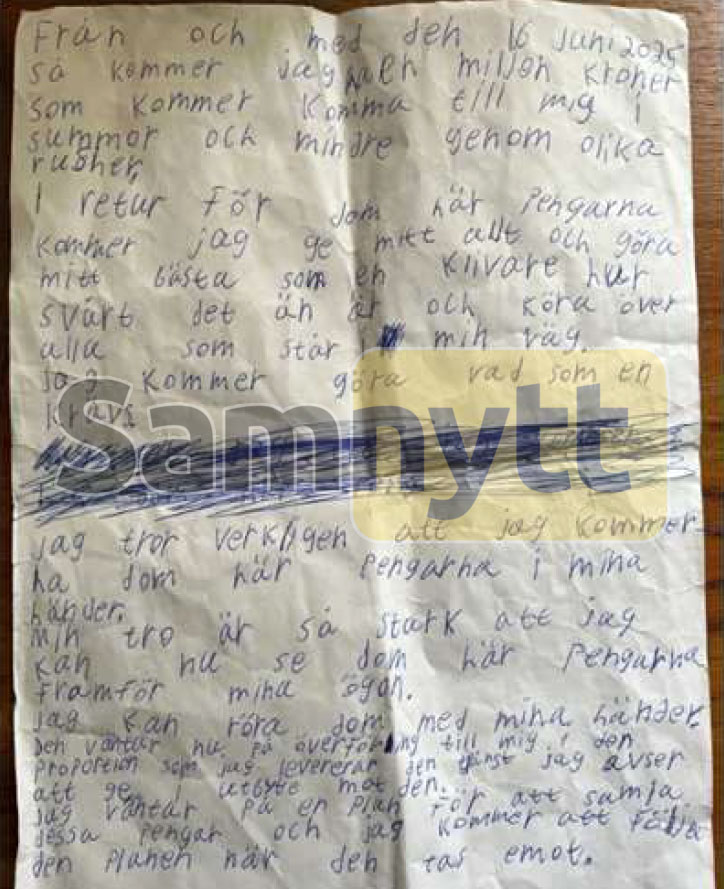 Från och med den 16 juni 2025
så kommer jag ha en miljon kroner
som kommer komma till mig i
summor och mindre genom olika
rusher,
I retur för dom här pengarna
kommer jag ge mitt allt och göra
mitt bästa som en klivare hur
svårt det än är och köra över
alla som står i min väg.
jag kommer göra vad som en
krävs
Samnytt
jag tror verkligen att jag kommer
ha dom här pengarna i mina
händer.
Min tro är så stark att jag
kan nu se dom här pengarna
framför mina ögon.
jag kan röra dom med mina händer.
den väntar nu på överföring till mig i den
proportion som jag levererar den tjänst jag avser
att ge i utbyte mot den.
jag väntar på en plan för att samla
dessa pengar och jag kommer att följa
den planen när den tas emot.